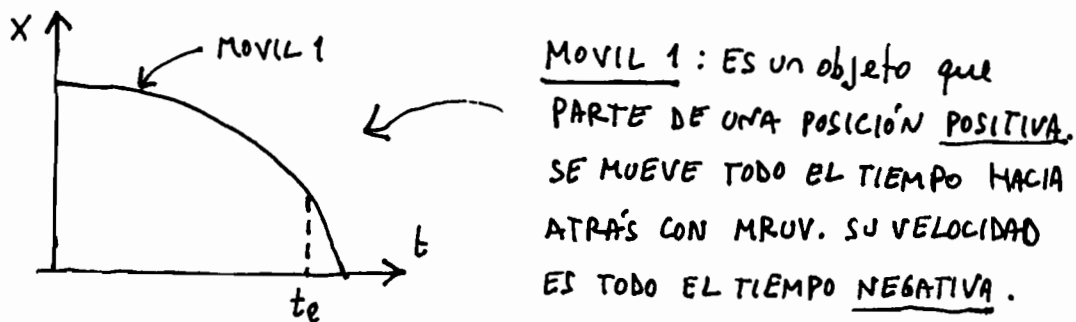 X
MOVIL 1
t
te
MOVIL 1 : ES un objeto que
PARTE DE UNA POSICIÓN POSITIVA.
SE MUEVE TODO EL TIEMPO HACIA
ATRÁS CON MRUV. SU VELOCIDAD
ES TODO EL TIEMPO NEGATIVA.